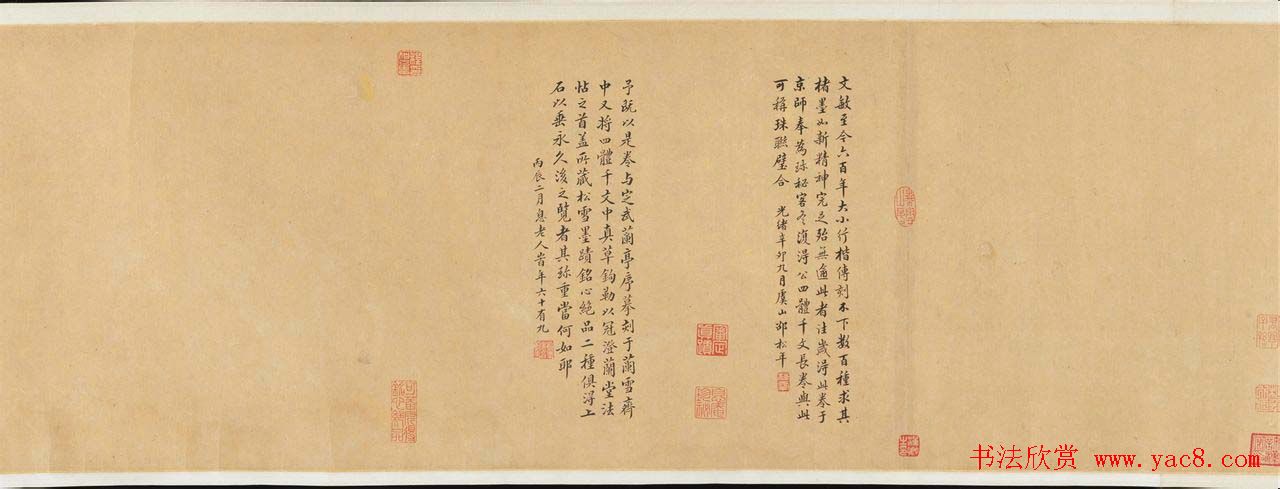 文敏至今六百年大小行楷傳刻不下數百種求其
楮墨如新精神完足殆無逾此者往歲得此卷于
京師奉爲珍秘客冬復得公四體千文長卷與此
可稱珠聯璧合
光緒辛卯九月虞山邵松年
予既以是卷与定武蘭亭序摹刻于蘭雪齋
中又将四體千文中真草鉤勒以冠澄蘭堂法
帖之首蓋所藏松雪墨蹟銘心絶品二種俱得上
石以垂永久後之覽者其珍重當何如耶
丙辰二月息老人峕年六十有九
书法欣赏 www.yac8.com